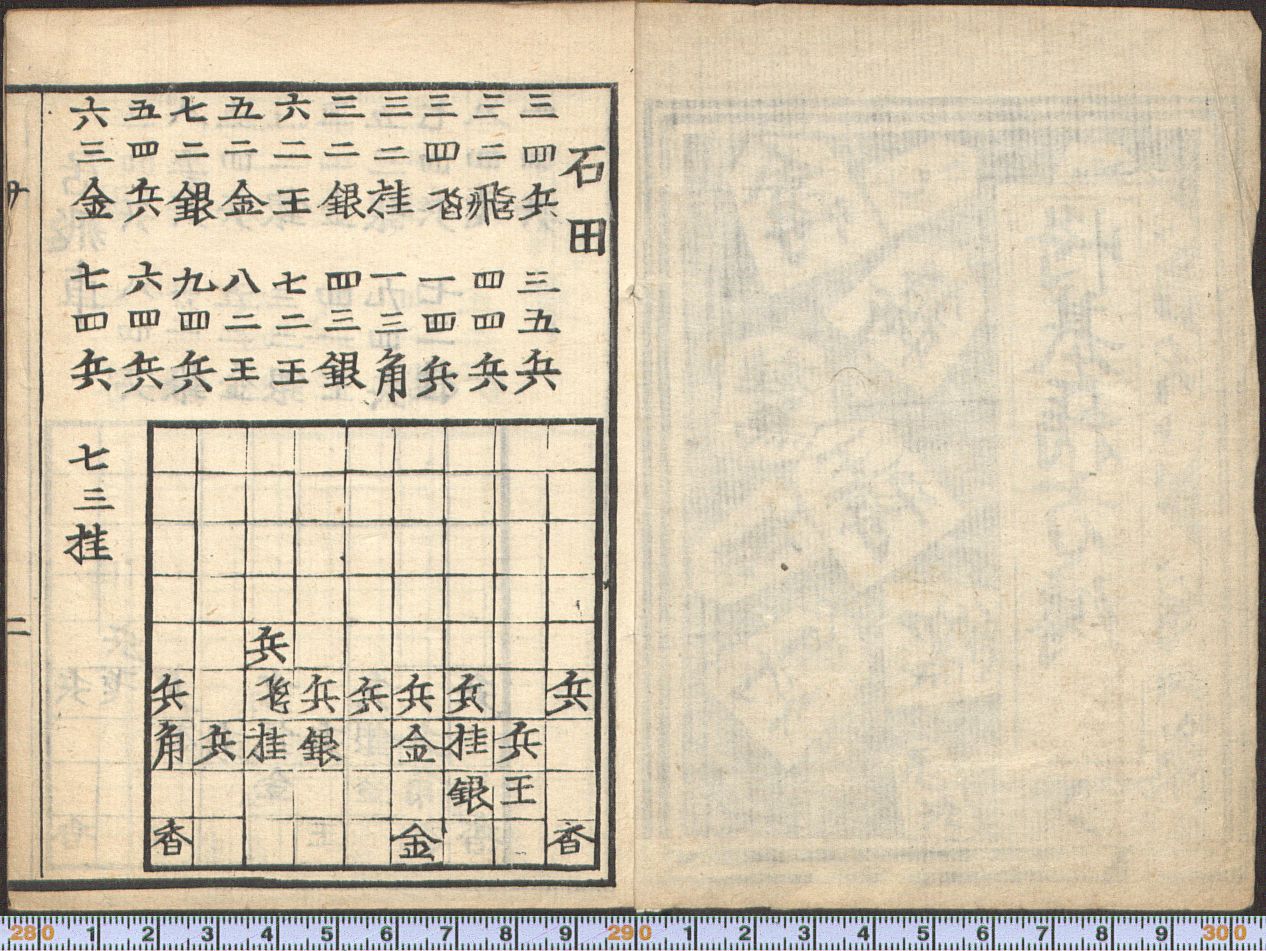 石田
三四兵 三五兵
三二飛 四四兵
三四飛 一四兵
三二桂 一三角
三二銀 四三銀
六二王 七二王
五二金 八二王
七二銀 九四兵
五四兵 六四兵
六三金 七四兵 七三桂
兵
兵 飛 兵 兵 兵 兵 兵
角 兵 桂 銀 金 桂 兵
銀 王
香 金 香
二
280 1 2 3 4 5 6 7 8 9 290 1 2 3 4 5 6 7 8 9 300